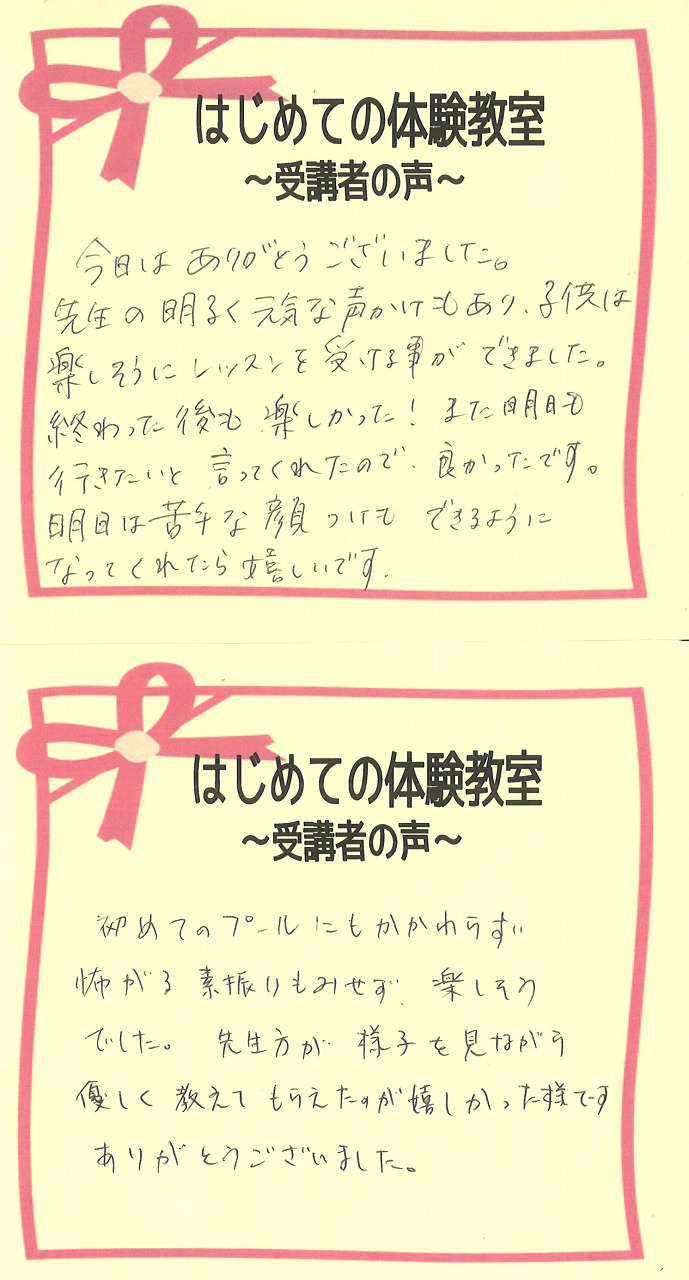 はじめての体験教室
～受講者の声～
今日は ありがとうございました。
先生の明るく元気な声かけもあり、子供は
楽しそうにレッスンを受ける事ができました。
終わった後も楽しかった！また明日も
行きたいと言ってくれたので、良かったです。
明日は苦手な顔つけも できるように
なってくれたら嬉しいです。
はじめての体験教室
～受講者の声～
初めてのプールにもかかわらず
怖がる素振りもみせず、楽しそう
でした。先生方が様子を見ながら
優しく教えてもらえたのが嬉しかった様です
ありがとうございました。